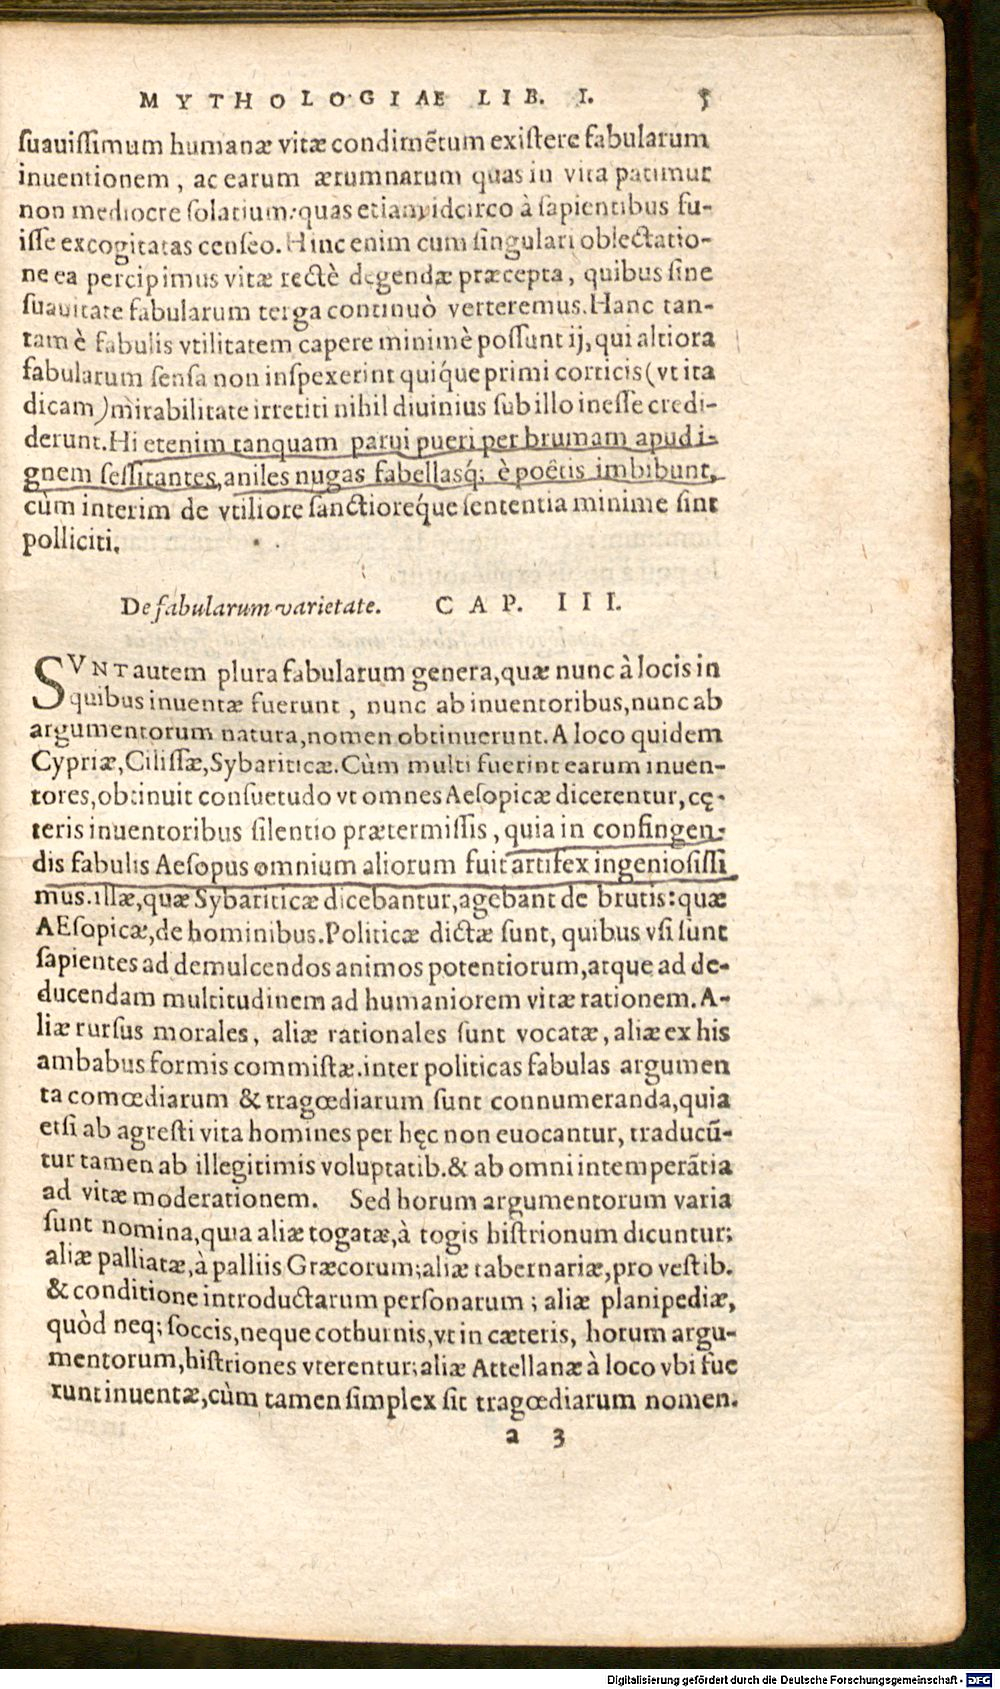 MYTHOLOGIAE LIB. I. 5
suauissimum humanæ vitæ condimẽtum existere fabularum
inuentionem, ac earum ærumnarum quas in vita patimur
non mediocre solatium: quas etiam idcirco à sapientibus fu-
isse excogitatas censeo. Hinc enim cum singulari oblectatio-
ne ea percipimus vitæ rectè degendæ præcepta, quibus sine
suauitate fabularum terga continuò verteremus. Hanc tan-
tam è fabulis vtilitatem capere minimè possunt ij, qui altiora
fabularum sensa non inspexerint quíque primi corticis (vt ita
dicam) mirabilitate irretiti nihil diuinius sub illo inesse credi-
derunt. Hi etenim tanquam parui pueri per brumam apud i-
gnem sessitantes, aniles nugas fabellasq́; è poëtis imbibunt,
cùm interim de vtiliore sanctioreque sententia minime sint
polliciti.
De fabularum varietate. CAP. III.
SVNT autem plura fabularum genera, quæ nunc à locis in
quibus inuentæ fuerunt, nunc ab inuentoribus, nunc ab
argumentorum natura, nomen obtinuerunt. A loco quidem
Cypriæ, Cilissæ, Sybariticæ. Cùm multi fuerint earum inuen-
tores, obtinuit consuetudo vt omnes Aesopicæ dicerentur, cę-
teris inuentoribus silentio prætermissis, quia in confingen-
dis fabulis Aesopus omnium aliorum fuit artifex ingeniosissi
mus. illæ, quæ Sybariticæ dicebantur, agebant de brutis: quæ
AEsopicæ, de hominibus. Politicæ dictæ sunt, quibus vsi sunt
sapientes ad demulcendos animos potentiorum, atque ad de-
ducendam multitudinem ad humaniorem vitæ rationem. A-
liæ rursus morales, aliæ rationales sunt vocatæ, aliæ ex his
ambabus formis commistæ. inter politicas fabulas argumen
ta comœdiarum & tragœdiarum sunt connumeranda, quia
etsi ab agresti vita homines per hęc non euocantur, traducũ-
tur tamen ab illegitimis voluptatib. & ab omni intemperãtia
ad vitæ moderationem. Sed horum argumentorum varia
sunt nomina, quia aliæ togatæ, à togis histrionum dicuntur;
aliæ palliatæ, à palliis Græcorum; aliæ tabernariæ, pro vestib.
& conditione introductarum personarum; aliæ planipediæ,
quòd neq; soccis, neque cothurnis, vt in cæteris, horum argu-
mentorum, histriones vterentur; aliæ Attellanæ à loco vbi fue
runt inuentæ, cùm tamen simplex sit tragœdiarum nomen.
a 3
Digitalisierung gefördert durch die Deutsche Forschungsgemeinschaft - DFG